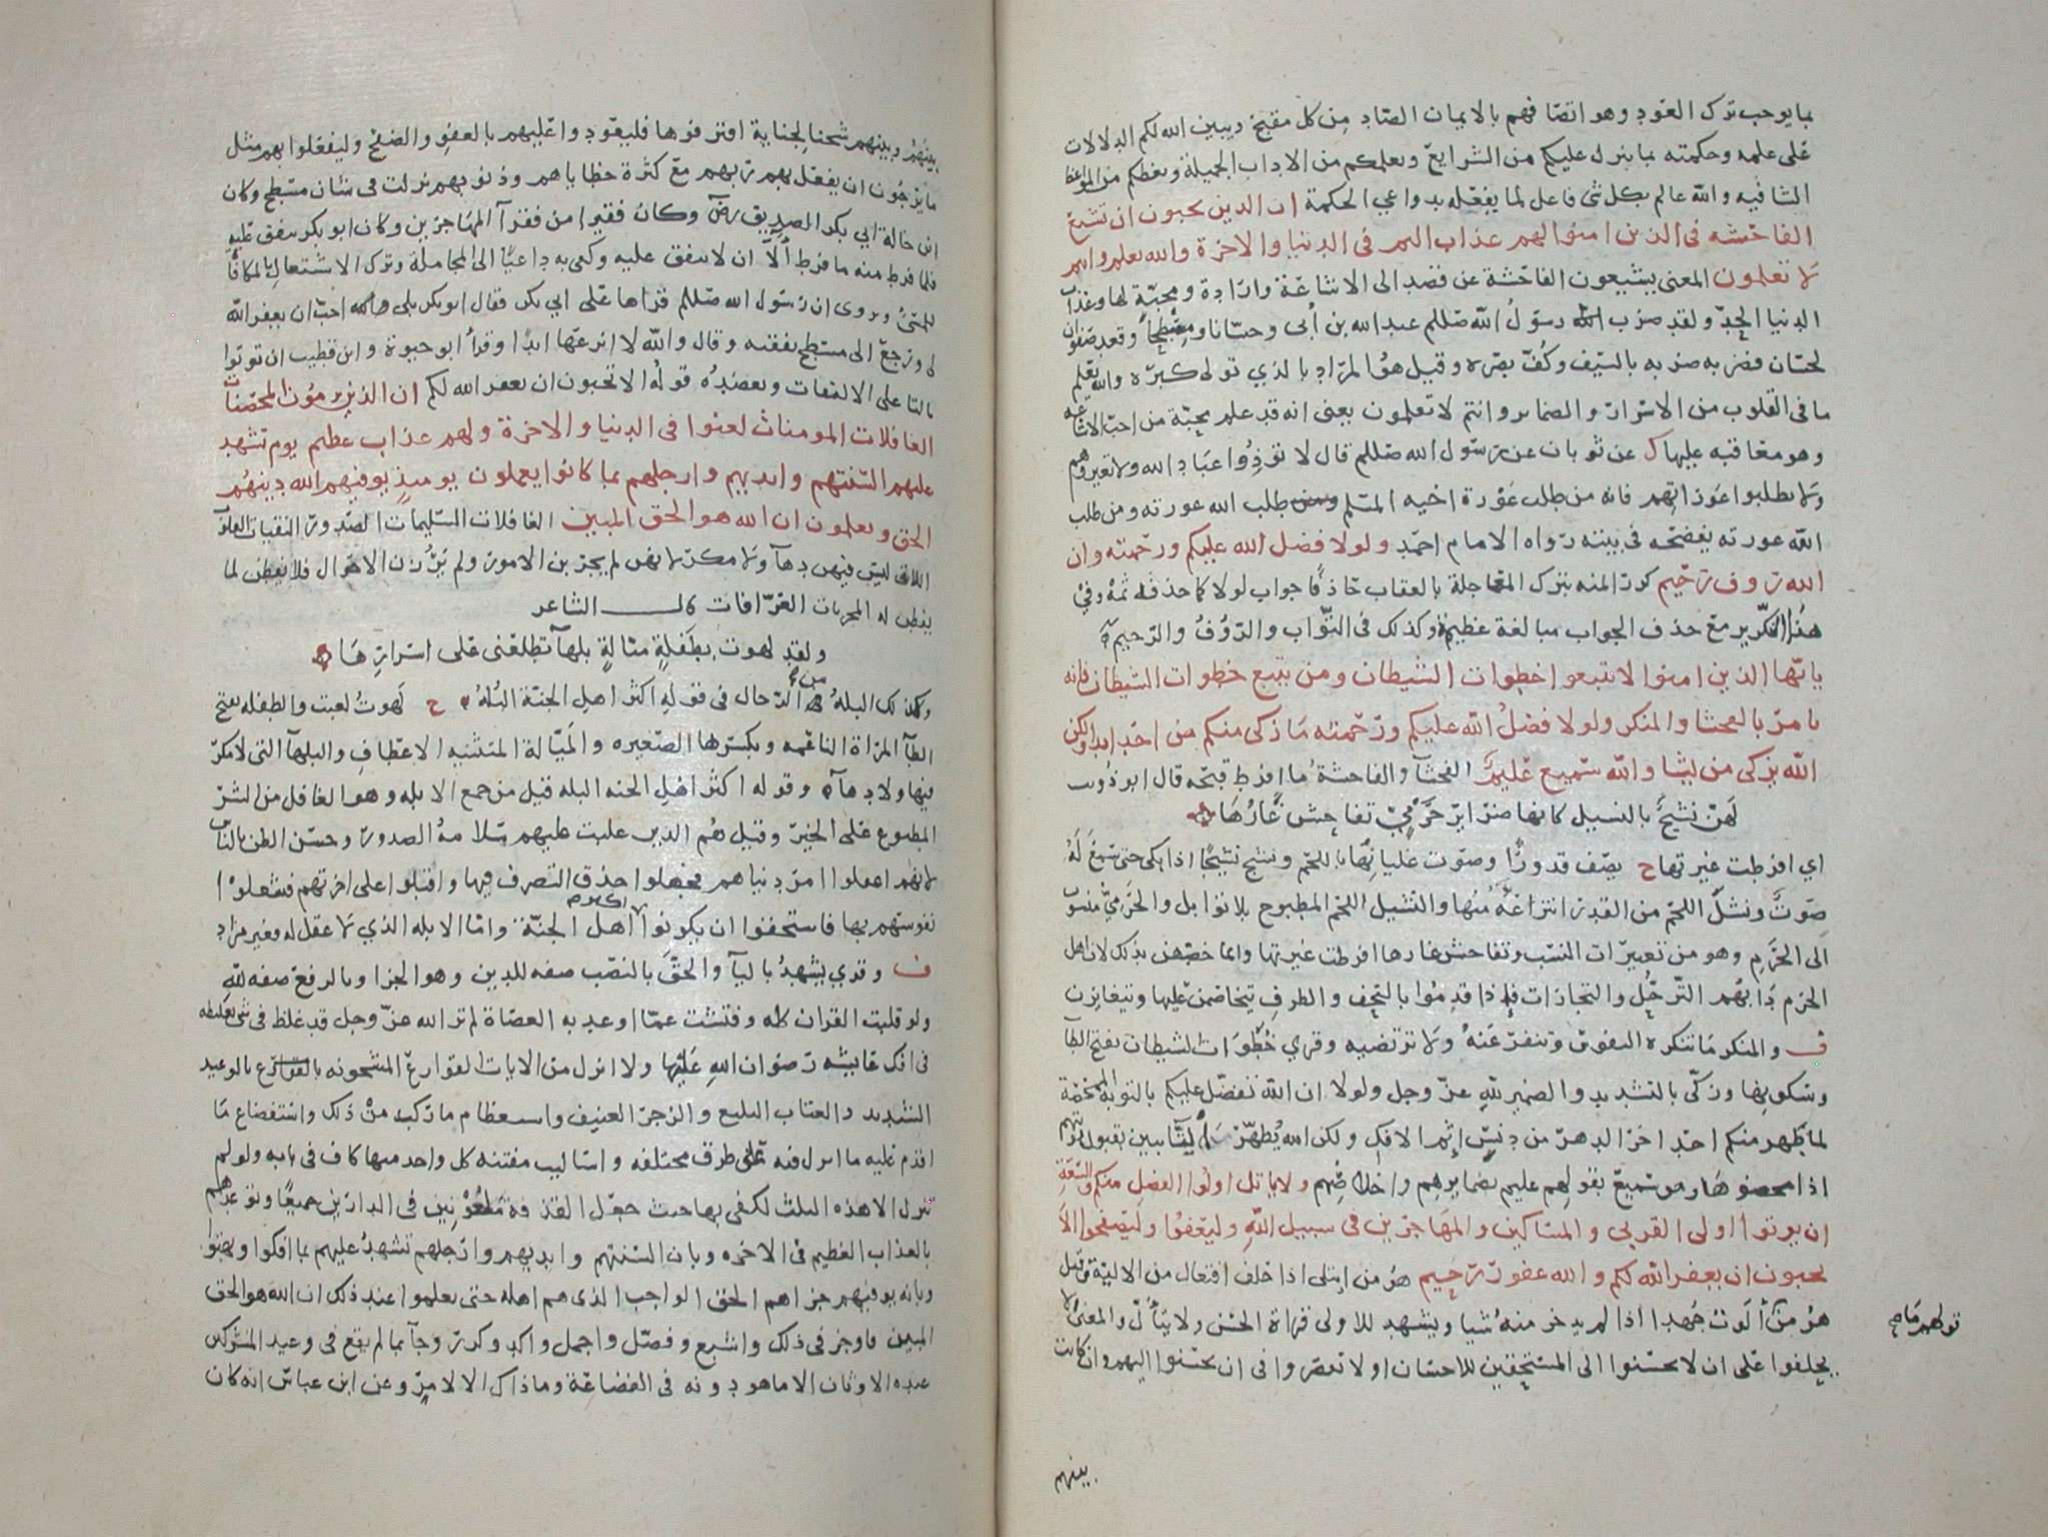 بما يوجب ترك العود وهو اتصافهم بالايمان الصاد من كل مقبح ويبين الله لكم الدلالات
على علمه وحكمته بما ينزل عليكم من الشرايع وتعلمكم من الاداب الجميلة وبعظكم من المواعظ
الشافيه والله عالم بكل شى فاعل لما يفعله بدواعي الحكمة ان الدين يحبون ان تشيع
الفاحشه فى الذين امنوا لهم عذاب اليم فى الدنيا والاخرة والله يعلم وانتم
لا تعلمون المعنى يشيعون الفاحشة عن قصد الى الاشاعة وارادة ومحبة لها وعذاب
الدنيا الحد ولقد ضرب رسول الله صللم عبد الله بن أبى وحسانا ومسطحا وقعد صفوان
لحسان فضربه ضربه بالسيف وكف بصره وقيل هو المراد بالذي تولى كبره والله يعلم
ما فى القلوب من الاسرار والضماير وانتم لا تعلمون يعنى انه قد علم محبة من احب الاشاعه
وهو معاقبه عليها ك عن ثوبان عن رسول الله صللم قال لا تؤذوا عباد الله ولا تعيروهم
ولا تطلبوا عوراتهم فانه من طلب عورة اخيه المسلم طلب الله عورته ومن طلب
الله عورته يفضحه فى بيته رواه الامام احمد ولولا فضل الله عليكم ورحمته وان
الله رؤف رحيم كرر المنه بترك المعاجلة بالعقاب حاذفا جواب لولا كما حذفه ثمه وفي
هذا التكرير مع حذف الجواب مبالغة عظيمة وكذلك فى التواب والرؤف والرحيم
يا ايها الذين امنوا لا تتبعوا خطوات الشيطان ومن يتبع خطوات الشيطان فانه
يامر بالفحشا والمنكر ولولا فضل الله عليكم ورحمته ما زكى منكم من احد ابدا ولكن
الله يزكى من يشا والله سميع عليم الفحشآ والفاحشة ما افرط قبحه قال ابو ذويب
لهن نشيج بالنسيل كانها ضراير حرمي تفاحش غارها
اي افرطت غيرتها ح يصف قدورا وصوت غليانها باللحم ونشج نشيجا اذا بكى حتى سمع له
صوت ونشل اللحم من القدر انتزاعه منها والنشيل اللحم المطبوح بلا توابل والحرمي منسوب
الى الحرم وهو من تغييرات النسب وتفاحش غارها افرطت غيرتها وانما خصهن بذلك لان اهل
الحرم دابهم الترحل والتجارات فاذا قدموا بالتحف والطرف يتخاضمن عليها وتتغايرن
ف والمنكر ما تنكره النفوس وتنفر عنه ولا ترتضيه وقري خطوات الشيطان بفتح الطآ
وسكونها وزكى بالتشديد والضمير لله عز وجل ولولا ان الله تفضل عليكم بالتوبة الممحصة
لما طهر منكم احد اخر الدهر من دنس اثم الافك ولكن الله يطهر التآيبين بقبول توبتهم
اذا محضوها وهو سميع بقولهم عليم بضمايرهم واخلاصهم ولا ياتل اولوا الفضل منكم والسعة
ان يوتوا اولى القربى والمساكين والمهاجرين فى سبيل الله وليعفوا وليصفحوا الا
تحبون ان يغفر الله لكم والله غفور رحيم هو من ايتلى اذا حلف افتعال من الالية وقيل
هو من ألوت جهدا اذا لم يدخر منه شيا ويشهد للاولى قراة الحسن ولا يتأل والمعنى لا
يحلفوا على ان لا يحسنوا الى المستحقين للاحسان او لا تقصروا فى ان يحسنوا اليهم وان كانت
بينهم
بينهم وبينهم شحنا لجناية اقترفوها فليعودوا عليهم بالعفو والصفح وليفعلوا بهم مثل
ما يرجون ان يفعل بهم ربهم مع كثرة خطاياهم وذنوبهم نزلت فى شان مسطح وكان
ابن خالة ابي بكر الصديق رض وكان فقيرا من فقرآ المهاجرين وكان ابو بكر ينفق عليه
فلما فرط منه ما فرط ألا ان لا ينفق عليه وكفى به داعيا الى المجاملة وترك الاشتغال بالمكافاة
للمسئ ويروى ان رسول الله صللم قراها على ابي بكر فقال ابو بكر بلى احب ان يغفر الله
لى ورجع الى مسطح نفقته وقال والله لا انزعها ابدا وقرأ ابو حيوة وابن قطيب ان توتوا
بالتا على الالتفات ويعضده قوله الا تحبون ان يغفر الله لكم ان الذين يرمون المحصنات
الغافلات المومنات لعنوا فى الدنيا والاخرة ولهم عذاب عظيم يوم تشهد
عليهم السنتهم وايديهم وارجلهم بما كانوا يعملون يوميذ يوفيهم الله دينهم
الحق ويعلمون ان الله هو الحق المبين الغافلات السليمات الصدور النقيات القلوب
اللاتى ليس فيهن دهآ ولا مكر لانهن لم يجربن الامور ولم يرزن الاحوال فلا يفطن لما
يفطن له المجربات العرافات قال الشاعر
ولقد لهوت بطفلة ميالة بلهآ تطلعنى على اسرارها
وكذلك البله من الرجال فى قوله اكثر اهل الجنة البله ح لهوت لعبت والطفله بفتح
الطآ المراة الناعمه وبكسرها الصغيره والميالة المتثنيه الاعطاف والبلهآ التى لا مكر
فيها ولا دهآ وقوله اكثر اهل الجنه البله قيل من جمع الابله وهو الغافل من الشر
المطبوع على الخير وقيل هم الذين غلبت عليهم سلامة الصدور وحسن الظن بالناس
لانهم اغفلوا امر دنياهم فجهلوا حذق التصرف فيها واقبلوا على اخرتهم فشغلوا
نفوسهم بها فاستحقوا ان يكونوا اكثر اهل الجنة واما الابله الذي لا عقل له فغير مراد
ف وقري يشهد باليآ والحق بالنصب صفه للدين وهو الجزا وبالرفع صفه لله
ولو فليت القران كله وفتشت عما اوعد به العصاة لم تر الله عز وجل قد غلظ فى شى تغليظه
فى افك عايشه رضوان الله عليها ولا انزل من الايات القوارع المشحونه بالوعيد
الشديد والعتاب البليغ والزجر العنيف واستعظام ما ركب من ذلك واستفضاع ما
اقدم عليه ما انزل فيه على طرق مختلفه واساليب مفتنه كل واحد منها كاف فى بابه ولو لم
ينزل الا هذه الثلث لكفى بها حيث جعل القذفة ملعونين فى الدارين جميعا وتوعدهم
بالعذاب العظيم فى الاخره وبان السنتهم وايديهم وارجلهم تشهد عليهم بما افكوا وبهتوا
وبانه يوفيهم جزاهم الحق الواجب الذى هم اهله حتى يعلموا عند ذلك ان الله هو الحق
المبين فاوجز فى ذلك واشبع وفصل واجمل واكد وكرر وجآ بما لم يقع فى وعيد المشركين
عبده الاوثان الا ما هو دونه فى الفضاعة وما ذاك الا لامر وعن ابن عباس انه كان